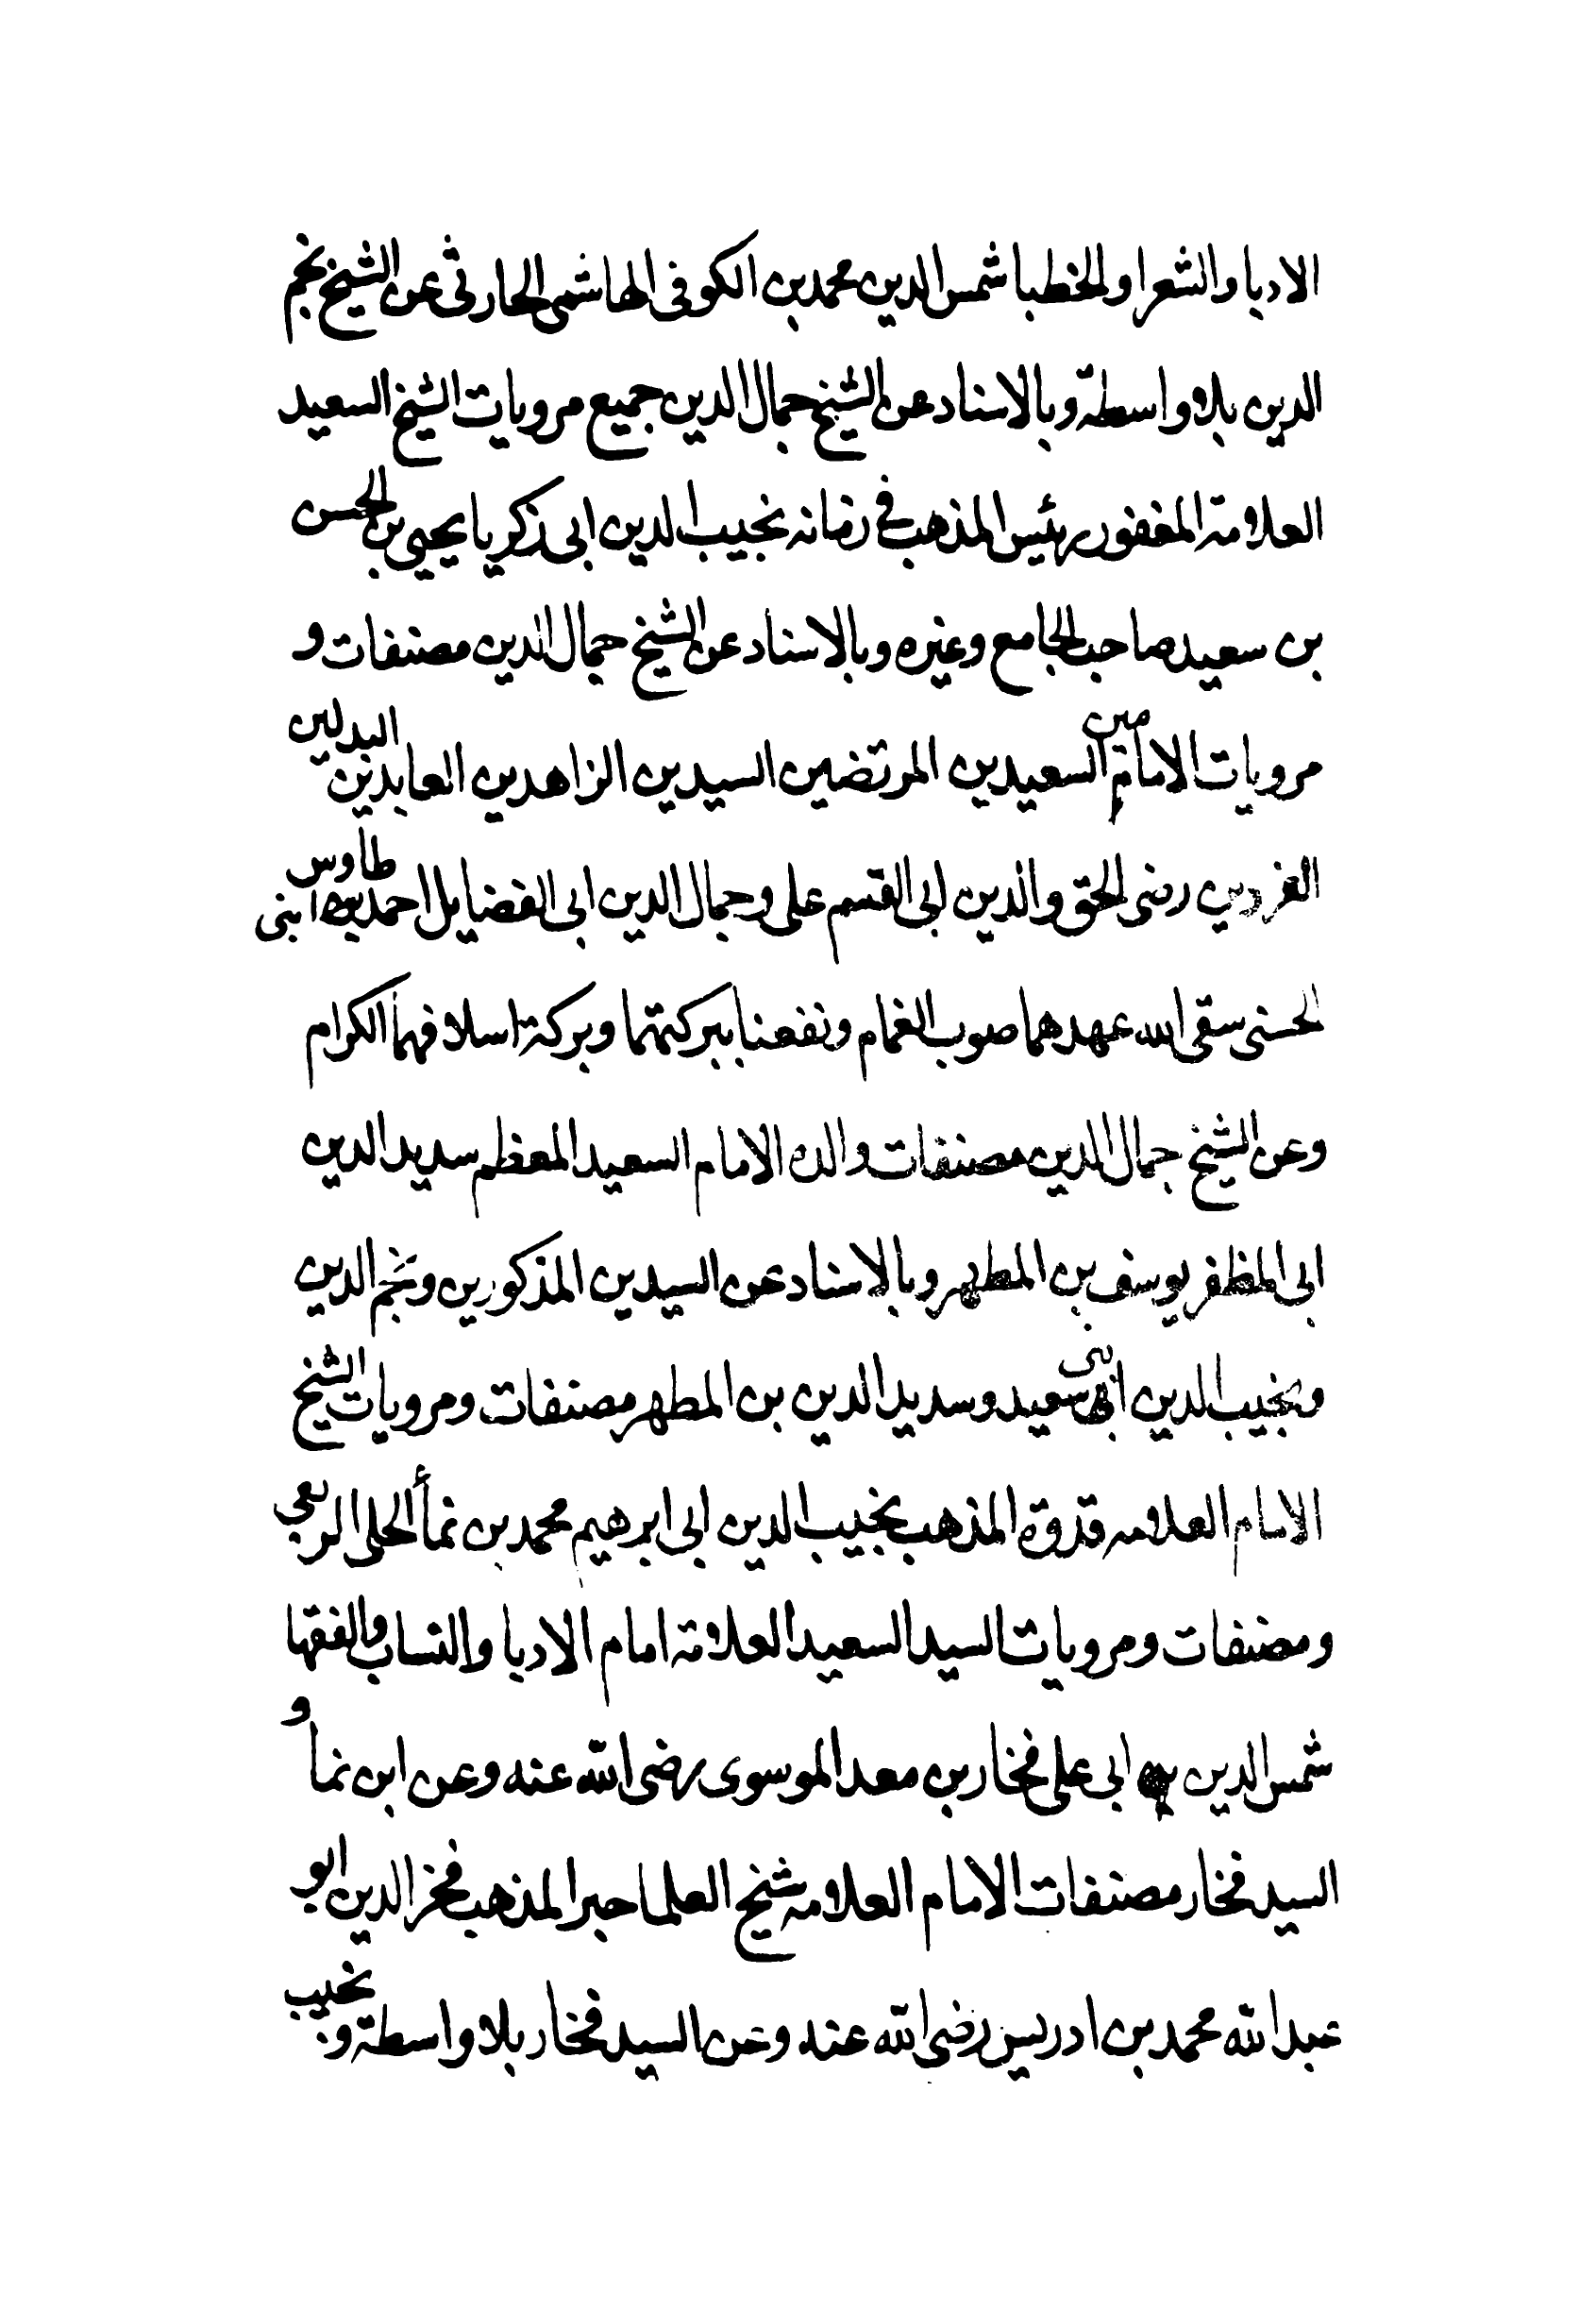 الادبا والشعرا والخطبا شمس الدين محمد بن الكوفى الهاشمى الحارثى عن الشيخ نجم
الدين بلا واسطة وبالاسناد عن الشيخ جمال الدين جميع مرويات الشيخ السعيد
العلامة المغفور رئيس المذهب فى زمانه نجيب الدين ابى زكريا يحيى بن الحسن
بن سعيد صاحب الجامع وغيره وبالاسناد عن الشيخ جمال الدين مصنفات و
مرويات الامامين السعيدين المرتضين السيدين الزاهدين العابدين البدلين
الفردين رضى الحق والدين ابى القسم على وجمال الدين ابى الفضايل احمد ابنى طاوس
الحسنى سقى الله عهدهما صوب الغمام ونفعنا ببركتهما وبركة اسلافهما الكرام
وعن الشيخ جمال الدين مصنفات والده الامام السعيد المعظم سديد الدين
ابى المظفر يوسف بن المطهر وبالاسناد عن السيدين المذكورين ونجم الدين
ونجيب الدين ابنى سعيد وسديد الدين بن المطهر مصنفات ومرويات الشيخ
الامام العلامه قدوة المذهب نجيب الدين ابى ابرهيم محمد بن نمأ الحلى الربعى
ومصنفات ومرويات السيد السعيد العلامة امام الادبا والنساب والفقها
شمس الدين ابى على فخار بن معد الموسوى رضى الله عنه وعن ابن نما و
السيد فخار مصنفات الامام العلامه شيخ العلما حبر المذهب فخر الدين ابو
عبد الله محمد بن ادريس رضى الله عنه وعن السيد فخار بلا واسطة ونجيب